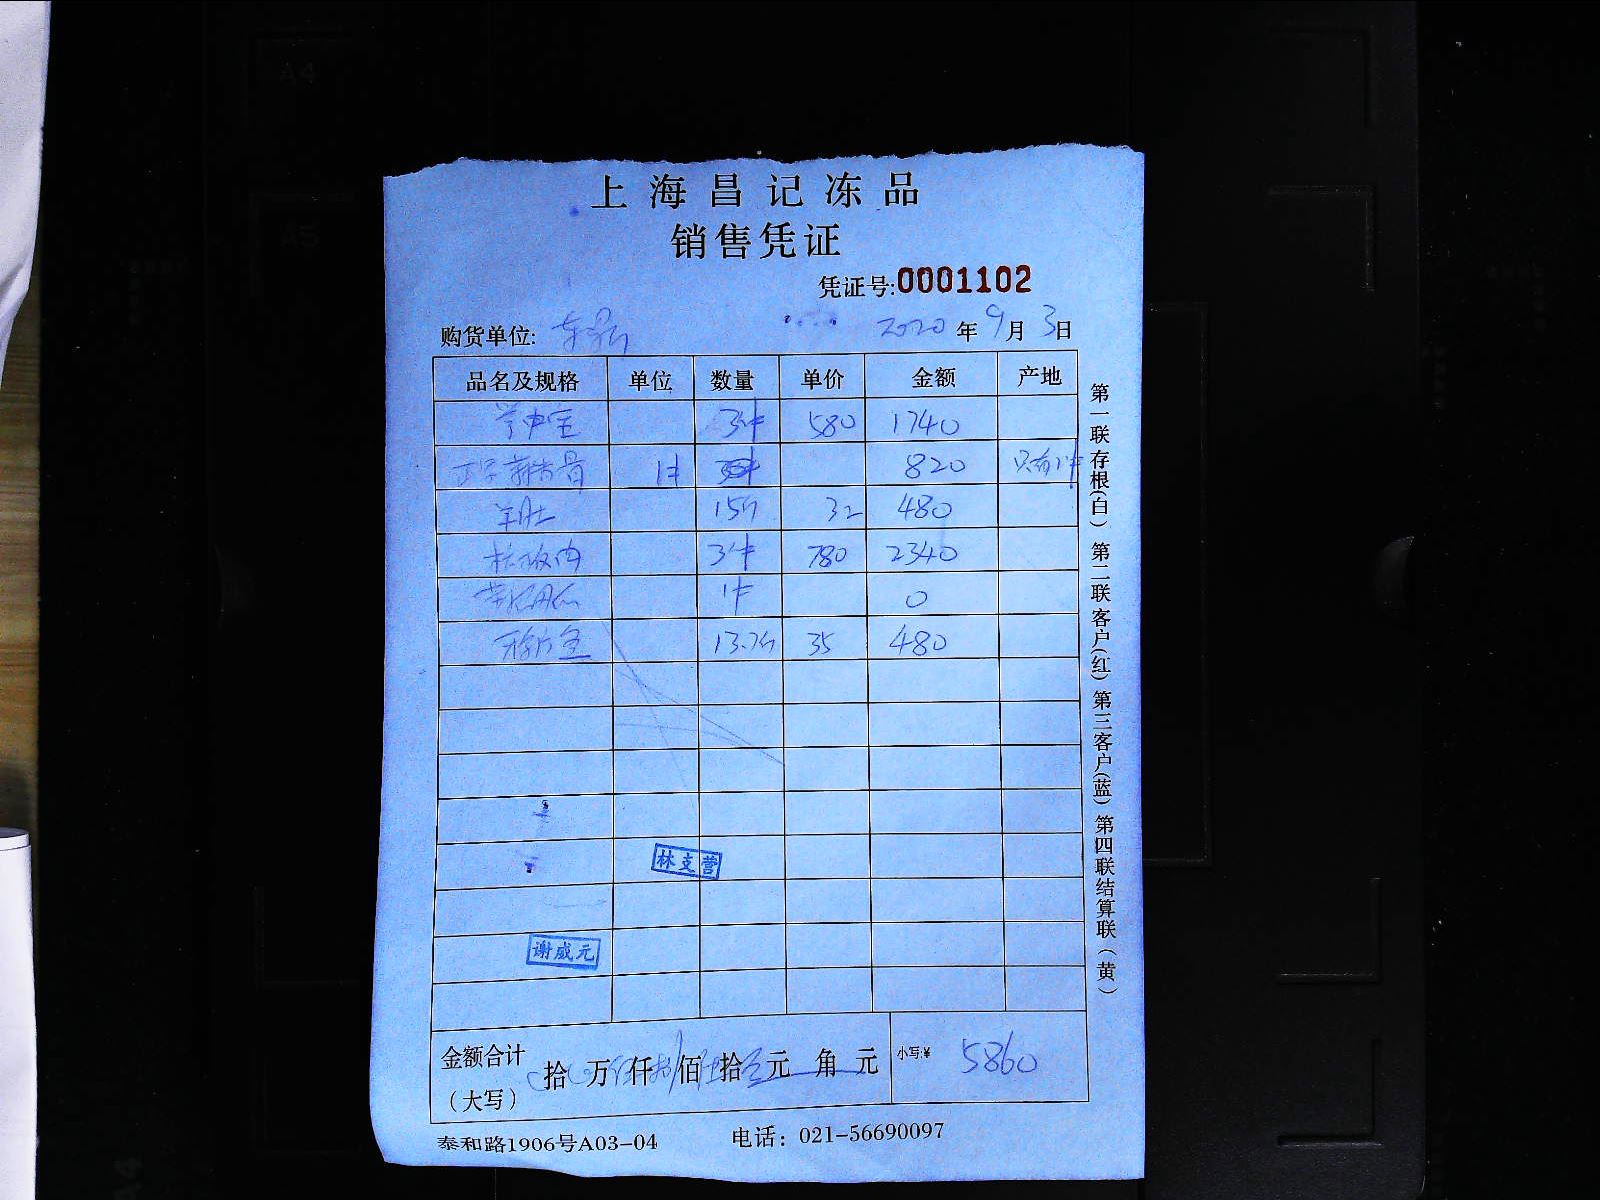 上海昌记冻品
销售凭证
凭证号:0001102
购货单位: 2020年9月3日
品名及规格 单位 数量 单价 金额 产地
3件 580 1740
1件 820 只有1件
羊肚 15斤 32 480
松板肉 3件 780 2340
1件 0
35 480
林支营
谢威元
金额合计 拾 万 仟 佰 拾 元 角 元 小写:¥ 5860
(大写)
泰和路1906号A03-04 电话：021-56690097
第一联存根(白) 第二联客户(红) 第三客户(蓝) 第四联结算联(黄)
A4
A5